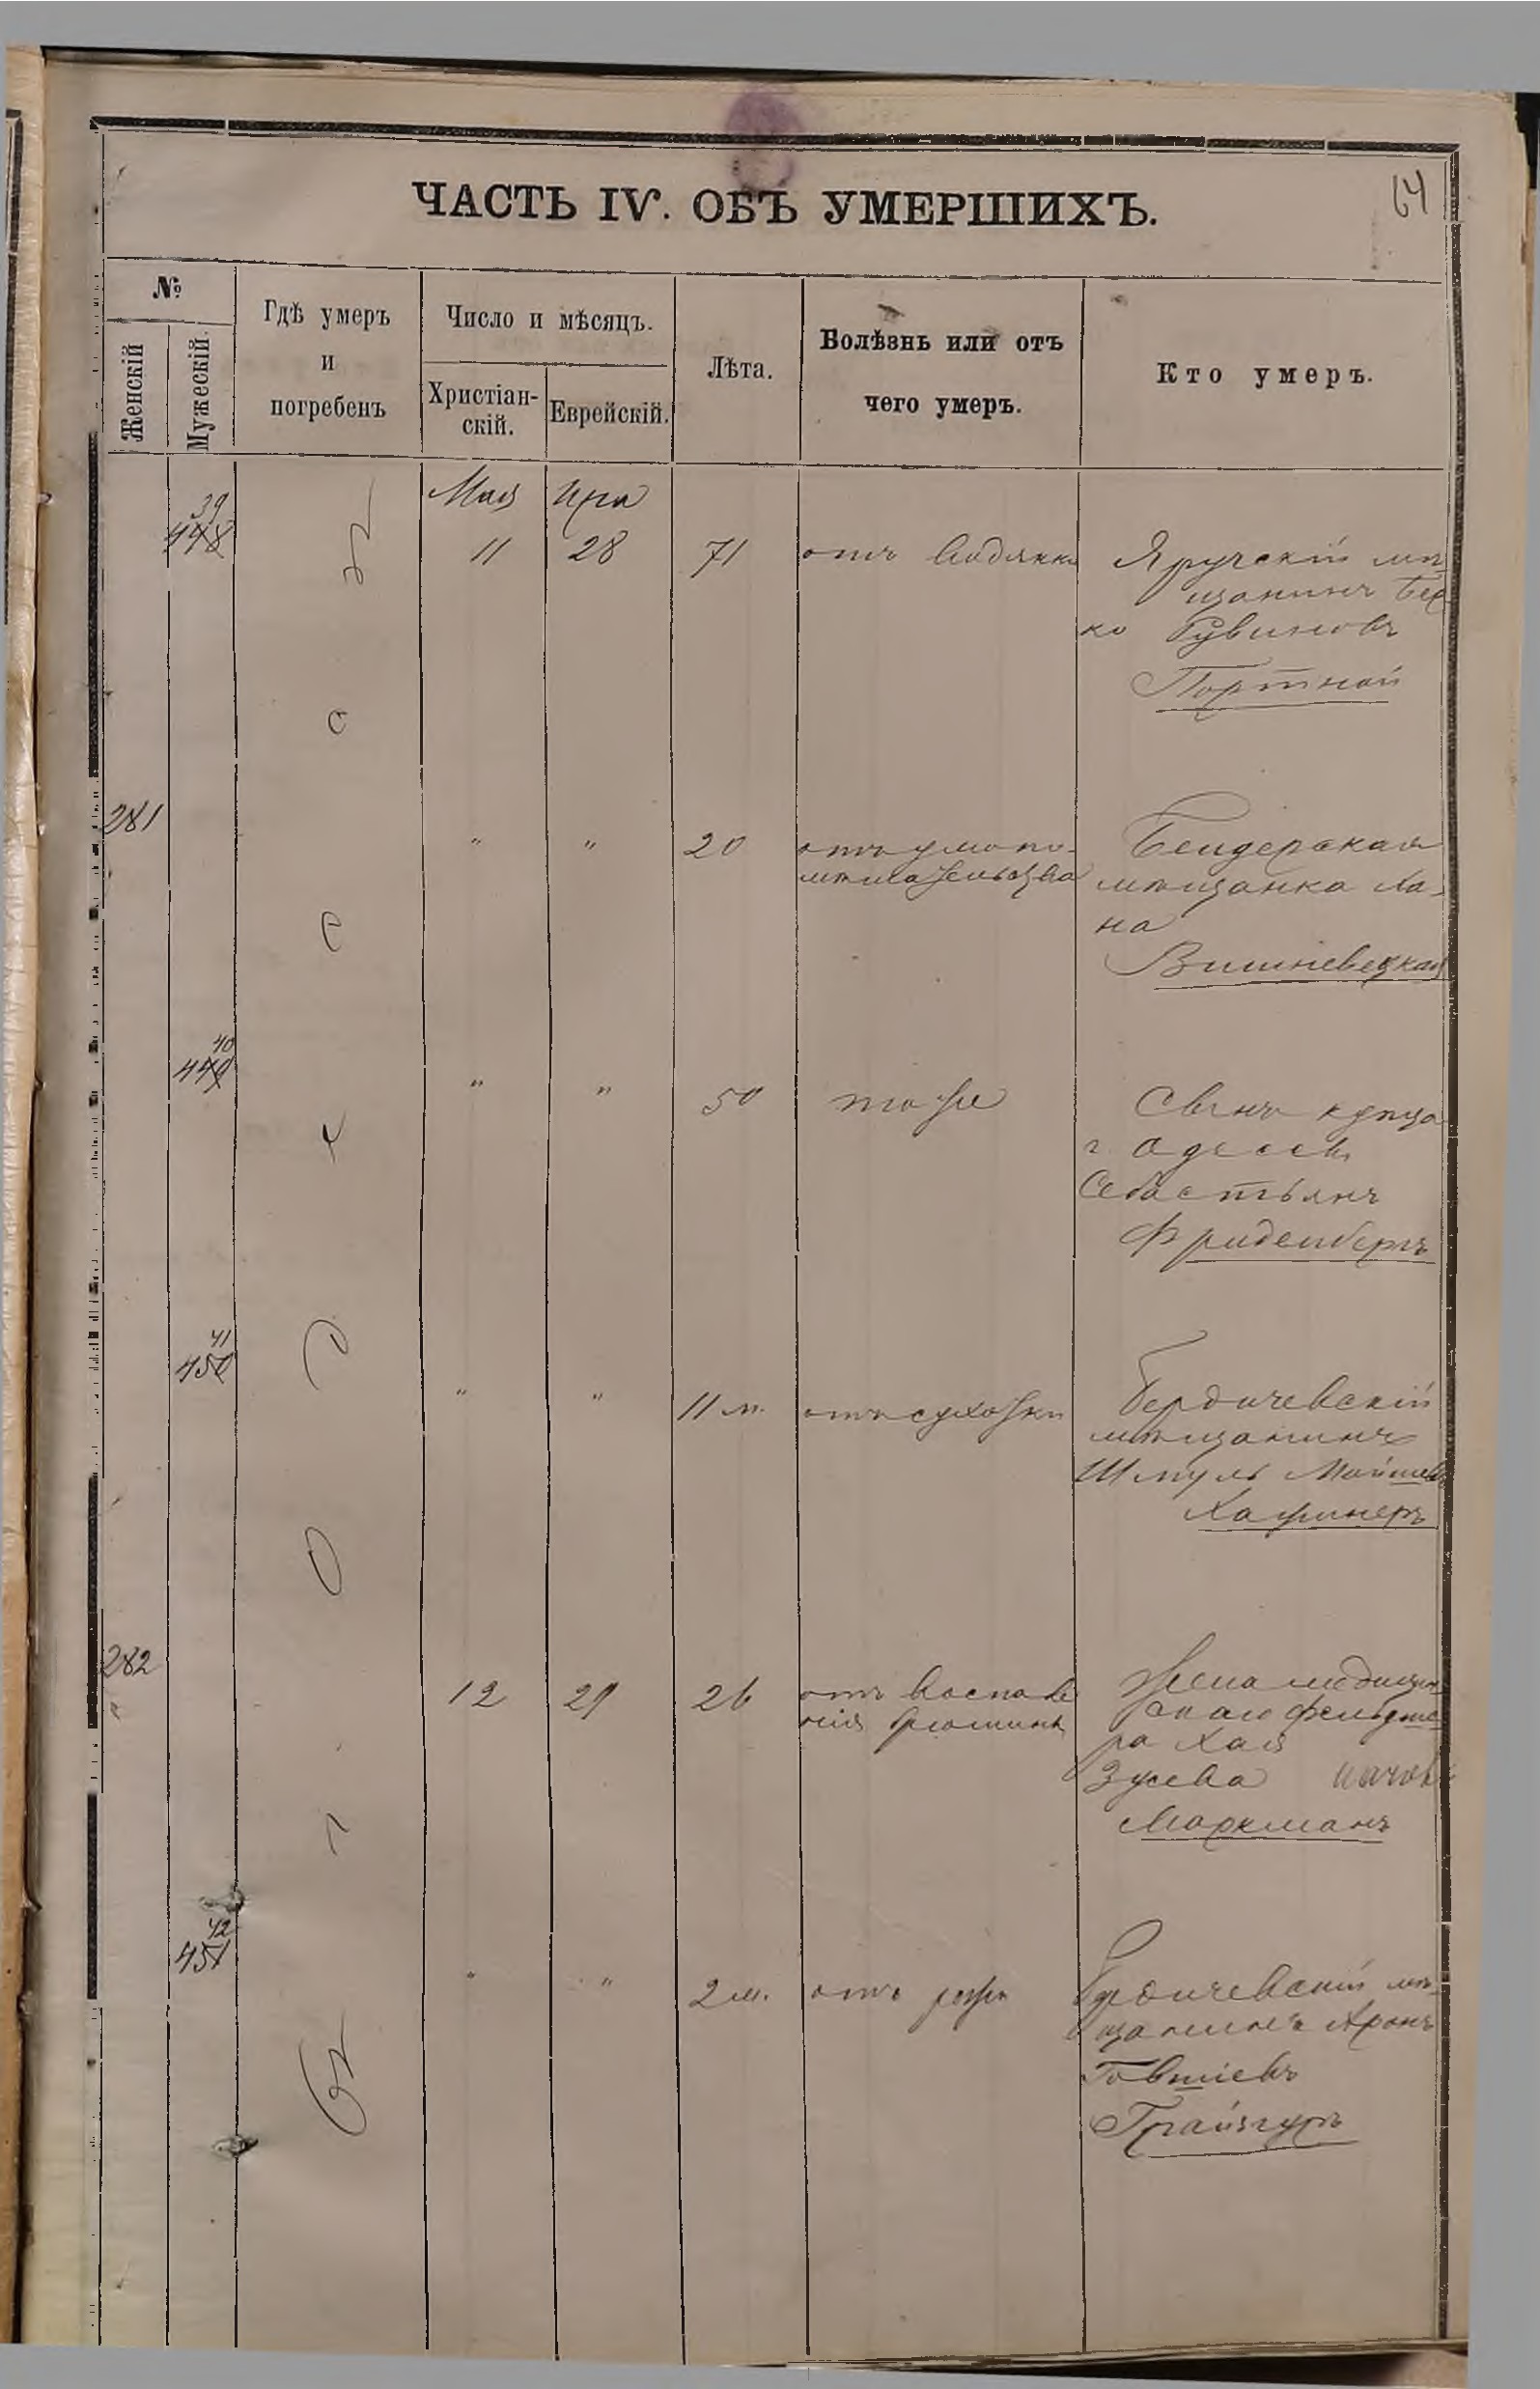 64
ЧАСТЬ IV. ОБЪ УМЕРШИХЪ.
№
Женскій
Мужескій
Гдѣ умеръ
и
погребенъ
Число и мѣсяцъ.
Христіан-
скій.
Еврейскій.
Лѣта.
Болѣзнь или отъ
чего умеръ.
Кто умеръ.
Мая
39
448
11
28
71
отъ водянки
Яручскій мѣ-
щанинъ Бер
ко Рувиновъ
Портной
281
"
"
20
отъ умопо-
мѣшательства
Бендерская
мѣщанка Ха-
на
Вишневецкая
40
449
"
"
50
тоже
Сынъ купца
г. Одессы
Себастьянъ
Фриденбергъ
41
450
"
"
11 м.
отъ сухотки
Бердичевскій
мѣщанинъ
Шмуль Мойшев
282
12
29
26
отъ воспале
нія брюшины
Жена медицин-
скаго фельдше-
ра Хая
Зусева
Маркманъ
42
451
"
"
2 м.
отъ рожи
Бердичевскій мѣ-
щанинъ Аронъ
Говшіевъ
Въ Одессѣ